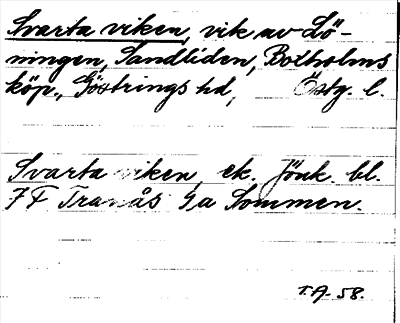 Svarta viken, vik av Lö-
ningen, Sandliden, Boxholms
köp., Göstrings hd, Östg. l.
Svarta viken, ek. Jönk. bl.
7 F Tranås Ga Sommen.
T.A. 58.